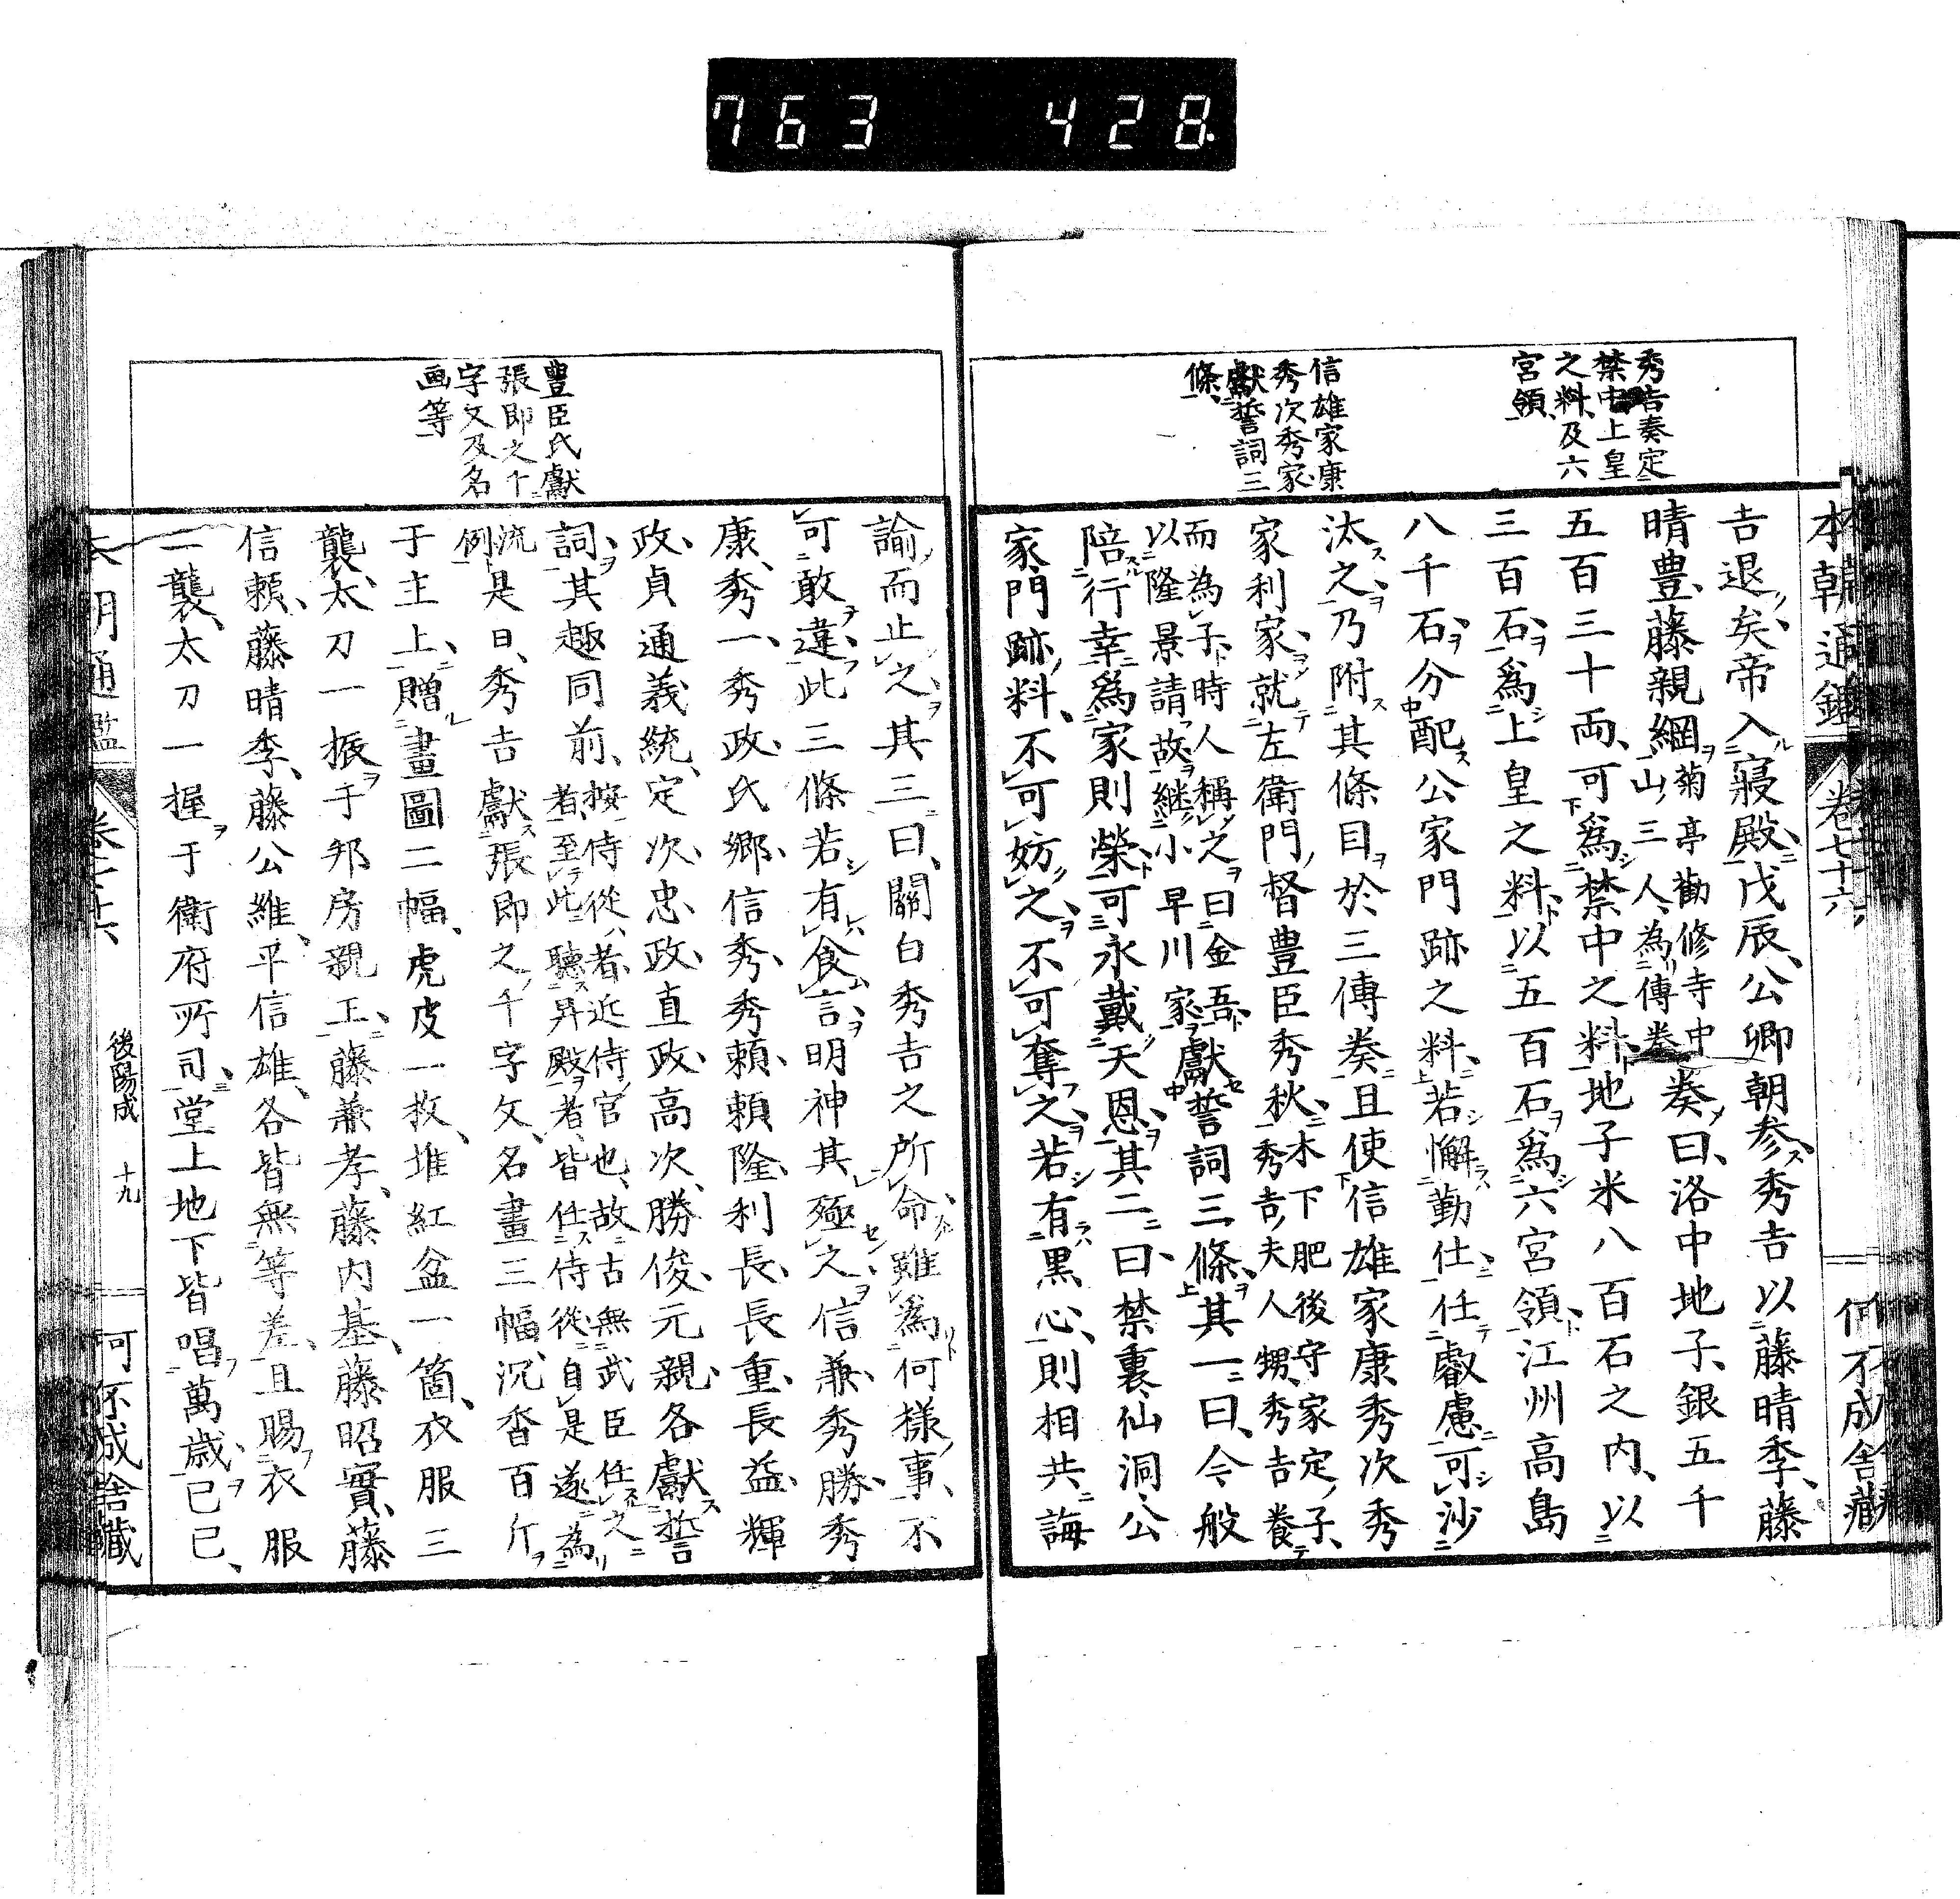 763 428
本朝通鑑 卷七十六 何不成舎藏
秀吉奏定
禁中上皇
之料及六
宮領
信雄家康
秀次秀家
獻誓詞三
條
吉退矣帝入寢殿戊辰公卿朝参秀吉以藤晴季藤
晴豊藤親綱
菊亭勸修寺中
山三人為傳奏
奏曰洛中地子銀五千
五百三十両可爲禁中之料地子米八百石之内以
三百石爲上皇之料以五百石爲六宮領江州高島
八千石分配公家門跡之料若懈勤仕任叡慮可沙
汰之乃附其條目於三傳奏且使信雄家康秀次秀
家利家就左衛門督豊臣秀秋
木下肥後守家定子
秀吉夫人甥秀吉養
而為子時人稱之曰金吾
以隆景請故継小早川家
獻誓詞三條其一曰今般
陪行幸爲家則榮可永戴天恩其二曰禁裏仙洞公
家門跡料不可妨之不可奪之若有黒心則相共誨
豊臣氏獻
張即之千
字文及名
画等
諭而止之其三曰關白秀吉之所命雖爲何様事不
可敢違此三條若有食言明神其殛之信兼秀勝秀
康秀一秀政氏郷信秀秀頼頼隆利長長重長益輝
政貞通義統定次忠政直政高次勝俊元親各獻誓
詞其趣同前
按侍從者近侍官也故古無武臣任之
者至此聽昇殿者皆任侍從自是遂為
流
例
是日秀吉獻張即之千字文名畫三幅沉香百斤
于主上贈畫圖二幅虎皮一枚堆紅盆一箇衣服三
襲太刀一振于邦房親王藤兼孝藤内基藤昭實藤
信頼藤晴季藤公維平信雄各皆無等差且賜衣服
一襲太刀一握于衛府所司堂上地下皆唱萬歳己巳
本朝通鑑 卷七十六 後陽成 十九 何不成舎藏